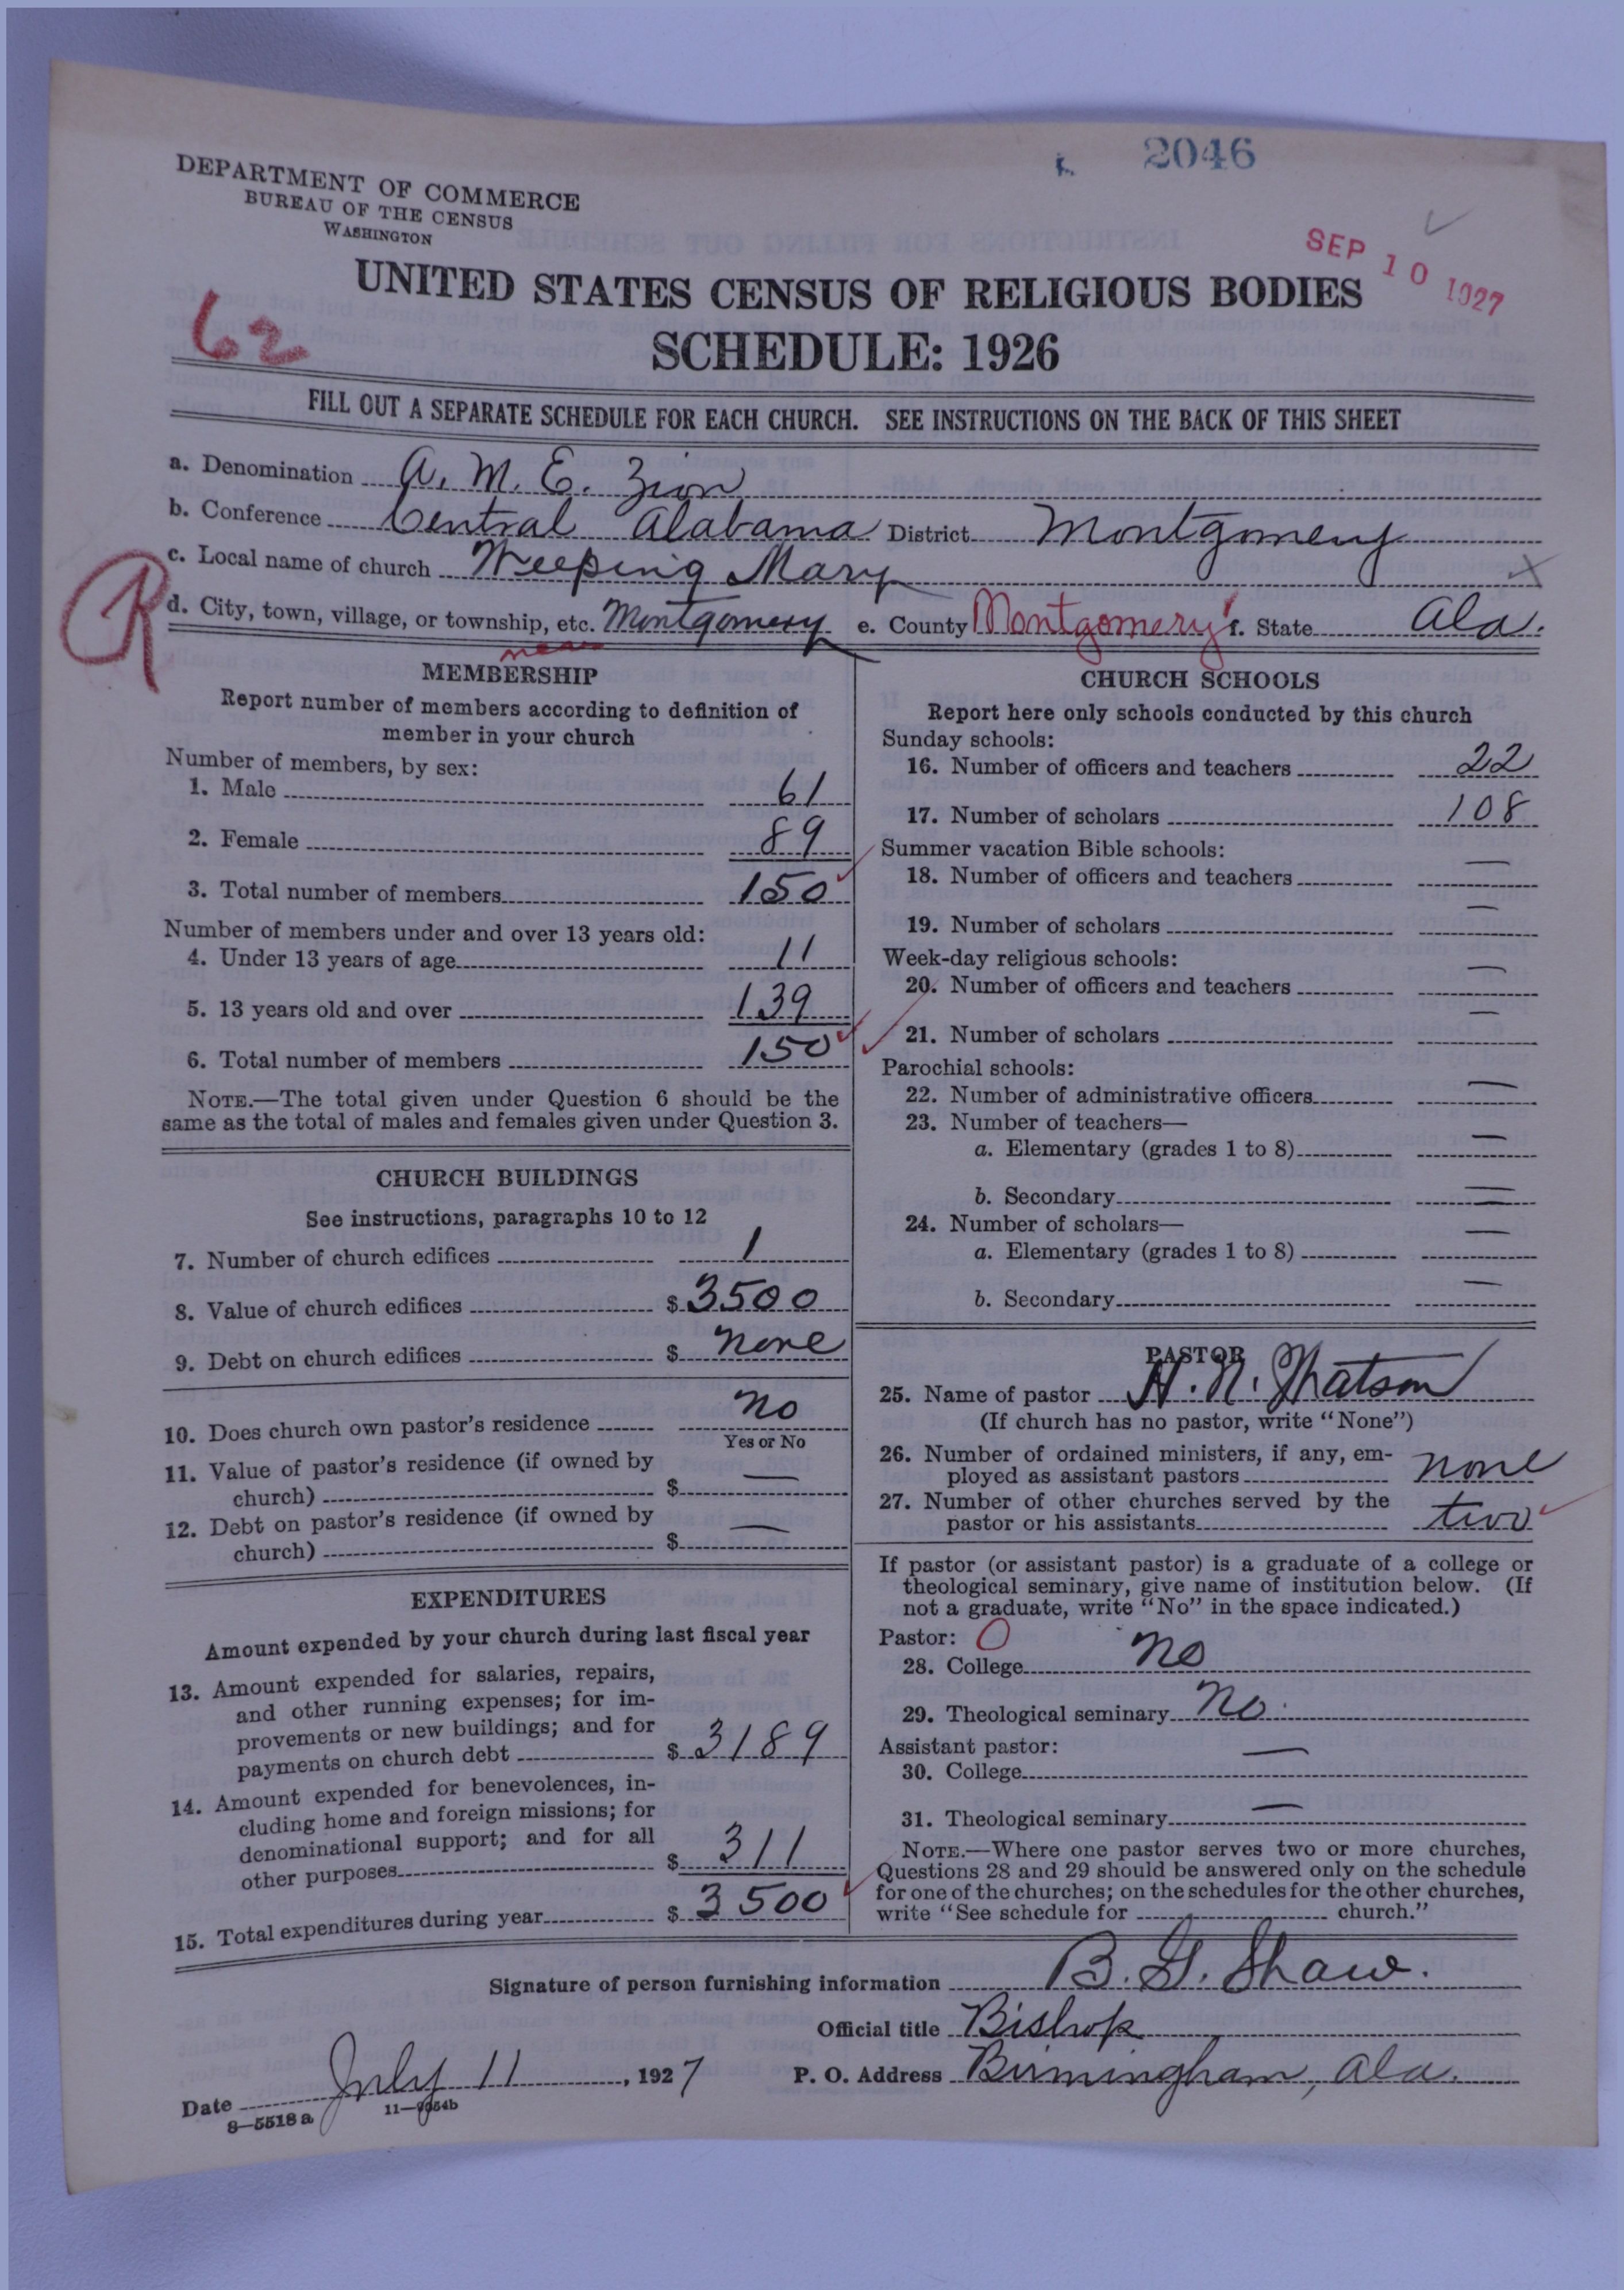 2046
DEPARTMENT OF COMMERCE
BUREAU OF THE CENSUS
WASHINGTON
SEP 10 1927
UNITED STATES CENSUS OF RELIGIOUS BODIES
62
SCHEDULE: 1926
FILL OUT A SEPARATE SCHEDULE FOR EACH CHURCH. SEE INSTRUCTIONS ON THE BACK OF THIS SHEET
a. Denomination A. M. E. Zion
b. Conference Central Alabama District Montgomery
c. Local name of church Weeping Mary
R
d. City, town, village, or township, etc. Montgomery e. County Montgomery f. State Ala.
near
MEMBERSHIP
Report number of members according to definition of
member in your church
Number of members, by sex:
1. Male 61
2. Female 89
3. Total number of members 150
Number of members under and over 13 years old:
4. Under 13 years of age 11
5. 13 years old and over 139
6. Total number of members 150
NOTE.—The total given under Question 6 should be the
same as the total of males and females given under Question 3.
CHURCH BUILDINGS
See instructions, paragraphs 10 to 12
7. Number of church edifices 1
8. Value of church edifices $ 3500
9. Debt on church edifices $ none
10. Does church own pastor's residence No
Yes or No
11. Value of pastor's residence (if owned by
church) $ —
12. Debt on pastor's residence (if owned by
church) $ —
EXPENDITURES
Amount expended by your church during last fiscal year
13. Amount expended for salaries, repairs,
and other running expenses; for im-
provements or new buildings; and for
payments on church debt $ 3189
14. Amount expended for benevolences, in-
cluding home and foreign missions; for
denominational support; and for all
other purposes $ 311
15. Total expenditures during year $ 3500
CHURCH SCHOOLS
Report here only schools conducted by this church
Sunday schools:
16. Number of officers and teachers 22
17. Number of scholars 108
Summer vacation Bible schools:
18. Number of officers and teachers —
19. Number of scholars —
Week-day religious schools:
20. Number of officers and teachers —
21. Number of scholars —
Parochial schools:
22. Number of administrative officers —
23. Number of teachers—
a. Elementary (grades 1 to 8) —
b. Secondary —
24. Number of scholars—
a. Elementary (grades 1 to 8) —
b. Secondary —
PASTOR
25. Name of pastor H. N. Watson
(If church has no pastor, write "None")
26. Number of ordained ministers, if any, em-
ployed as assistant pastors none
27. Number of other churches served by the
pastor or his assistants two
If pastor (or assistant pastor) is a graduate of a college or
theological seminary, give name of institution below. (If
not a graduate, write "No" in the space indicated.)
Pastor: 0
28. College No
29. Theological seminary No.
Assistant pastor:
30. College —
31. Theological seminary —
NOTE.—Where one pastor serves two or more churches,
Questions 28 and 29 should be answered only on the schedule
for one of the churches; on the schedules for the other churches,
write "See schedule for church."
Signature of person furnishing information B. G. Shaw.
Official title Bishop
Date July 11, 1927 P. O. Address Birmingham, Ala.
8—5518 a 11—9054b